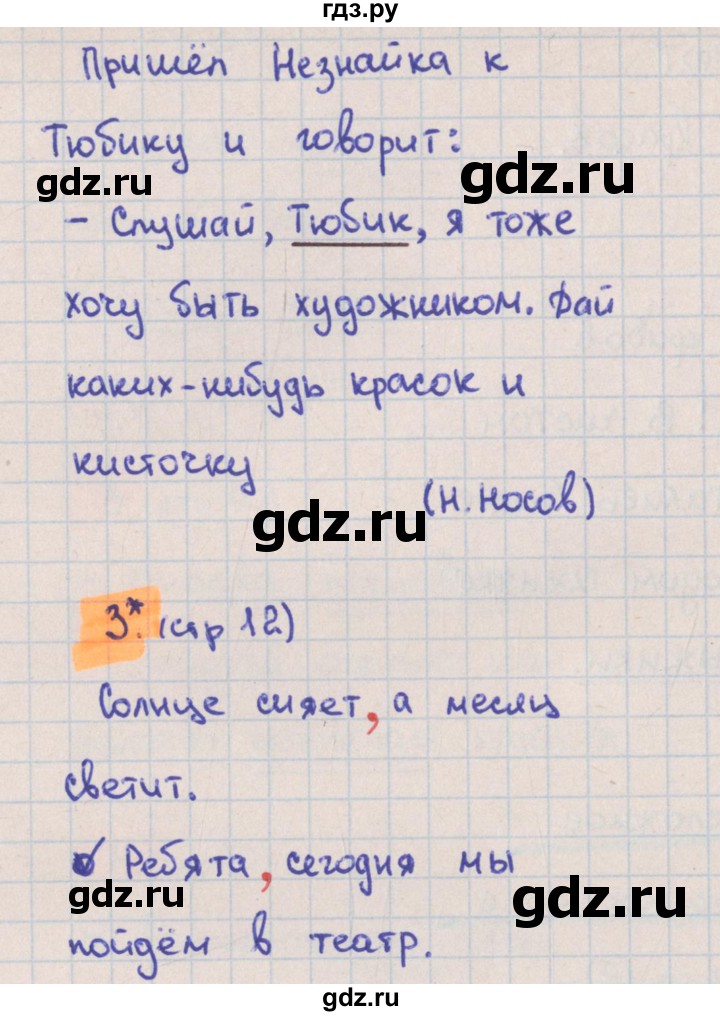 гдз.ру
Пришёл Незнайка к
Тюбику и говорит:
gdz.ru
gdz.ru
- Слушай, Тюбик, я тоже
хочу быть художником. Дай
каких-нибудь красок и
кисточку
(Н. Носов)
gdz.ru
3*. (стр 12)
Солнце сияет, а месяц
светит.
Ребята, сегодня мы
gdz.ru
gdz.ru
пойдём в театр.
gdz.ru